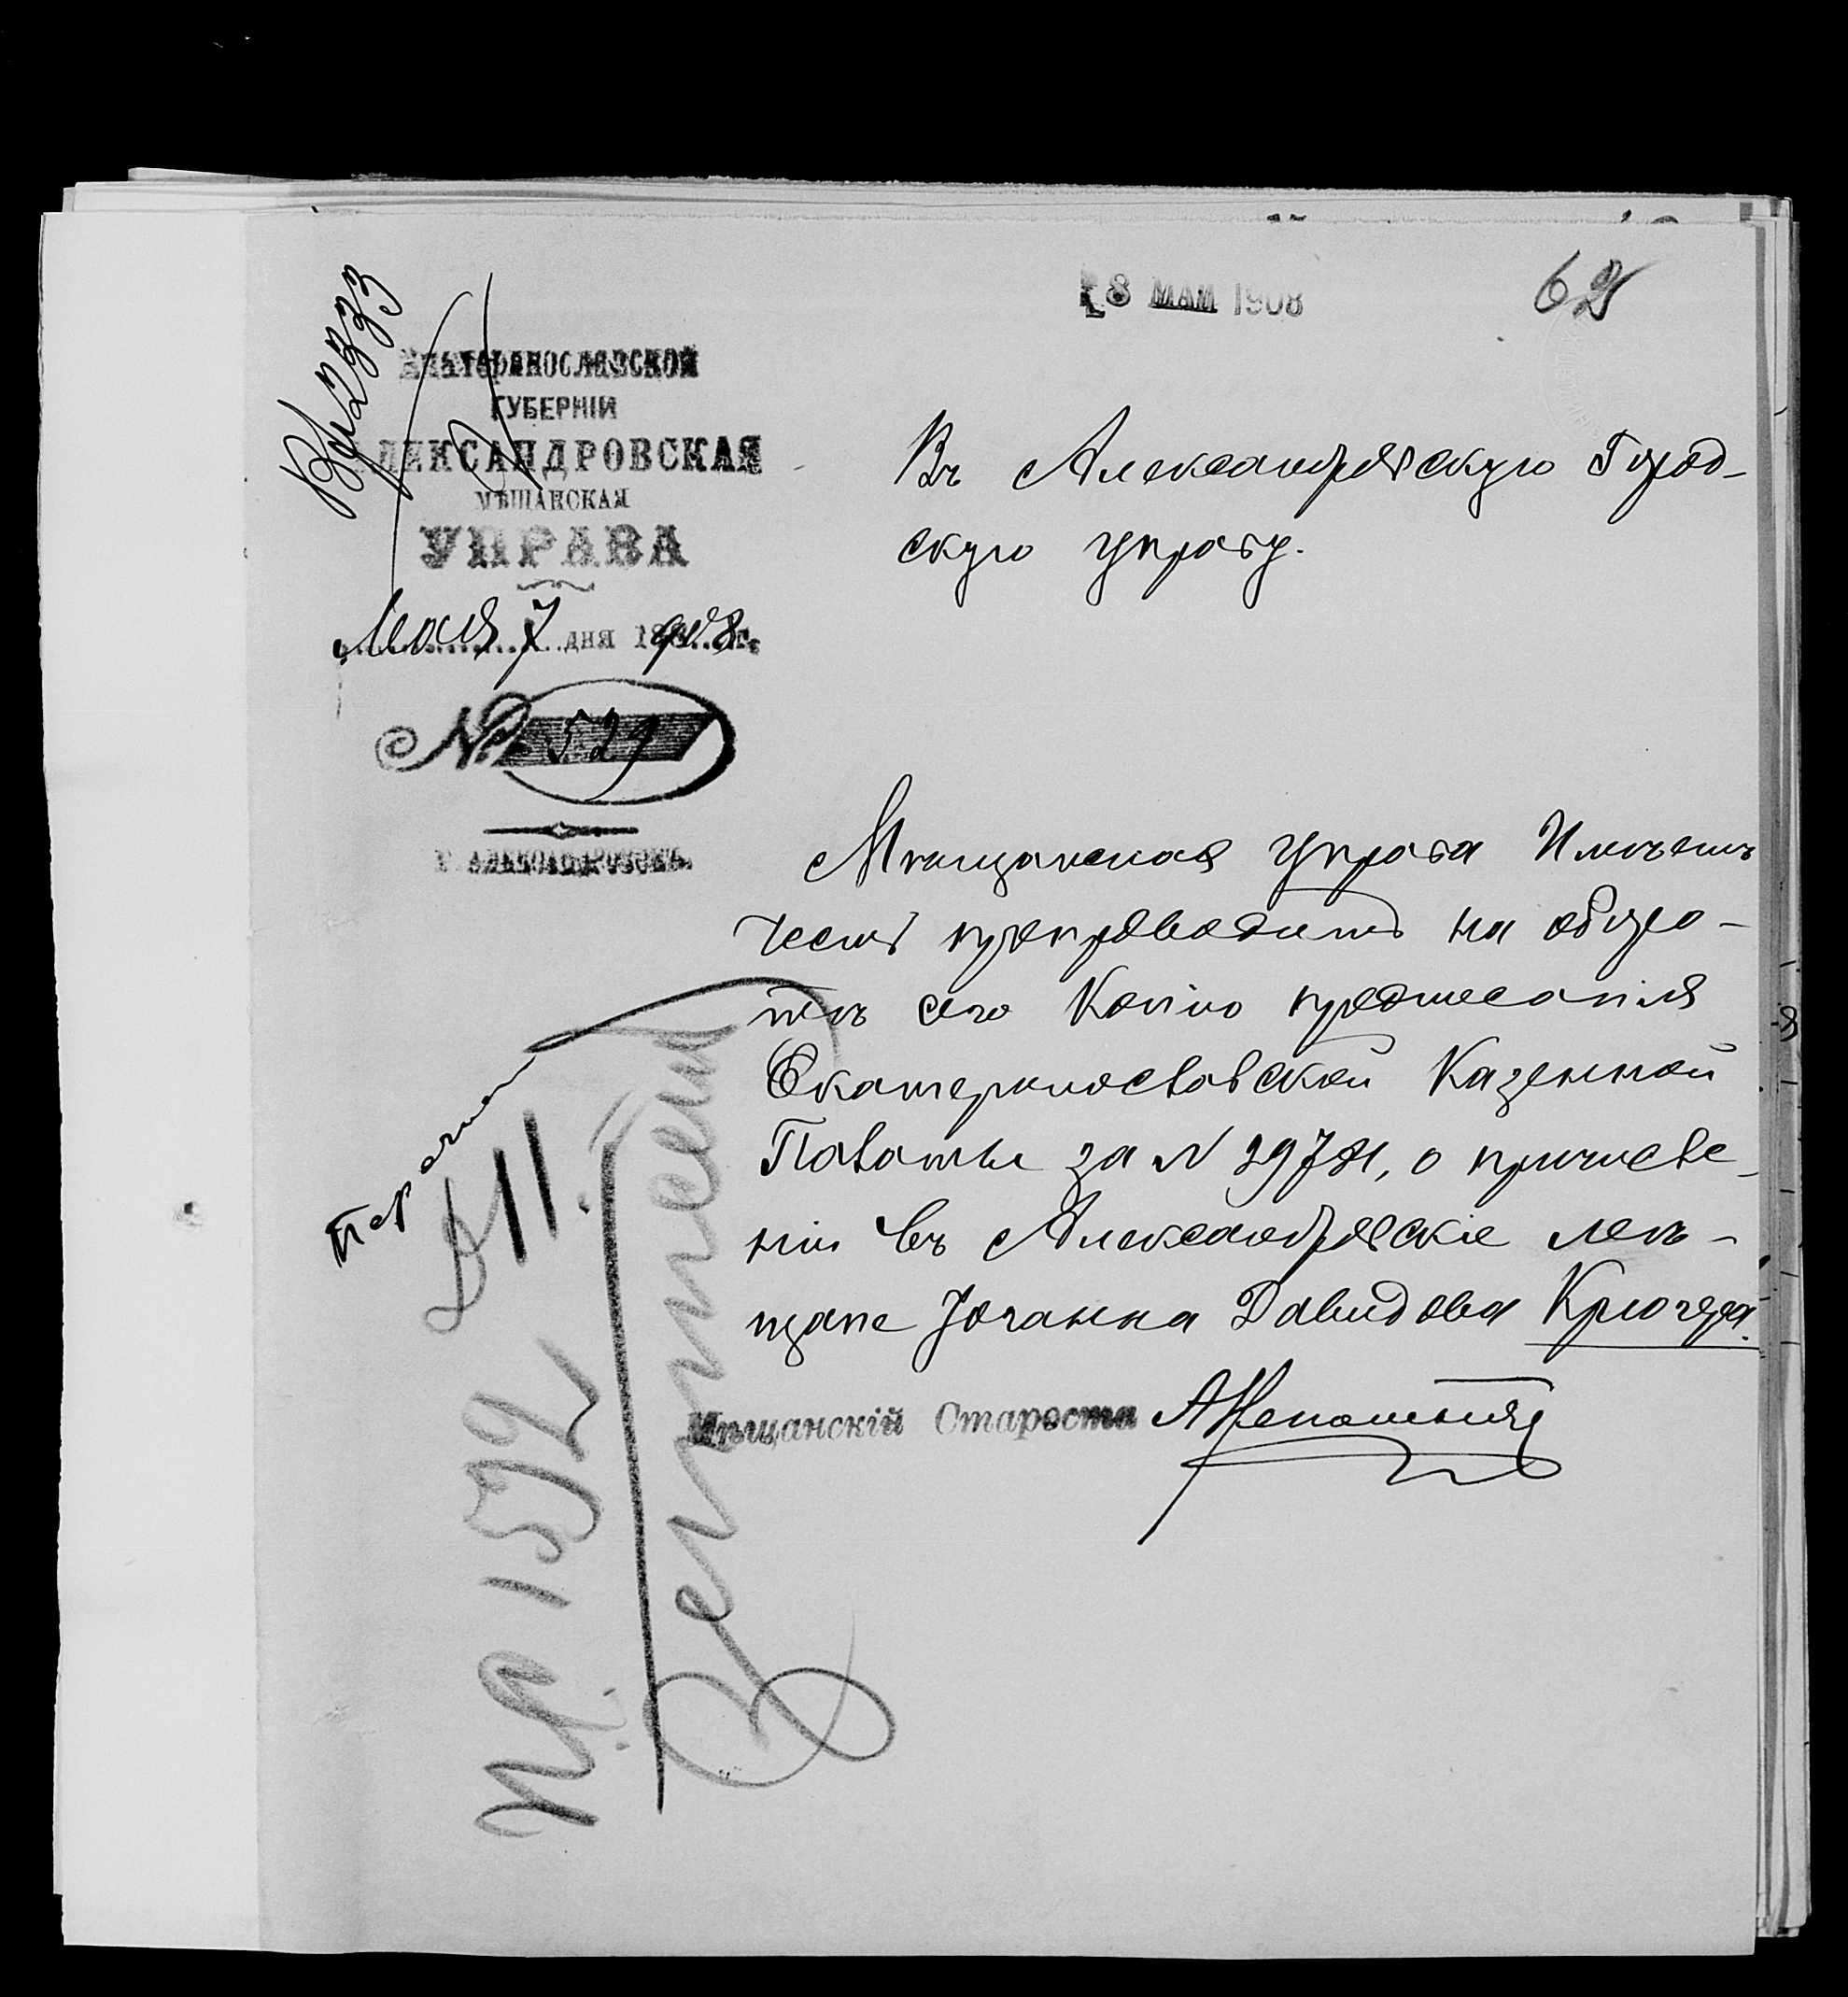 8 МАЙ 1908
62
Вх 2333
ЕКАТЕРИНОСЛАВСКОЙ
ГУБЕРНІИ
АЛЕКСАНДРОВСКАЯ
МѢЩАНСКАЯ
УПРАВА
Мая 7 дня 1908 г.
№ 529
Г. АЛЕКСАНДРОВСКЪ.
Въ Александровскую Город-
скую управу.
Мѣщанская управа Имѣетъ
честь препроводить на оборо-
тѣ сего Копію предписанія
Екатеринославской Казенной
Палаты за № о причисле-
ніи въ Александровскіе мѣ-
щане Іоганна Давидова Крюгера.
Мѣщанскій Староста
11.
1592